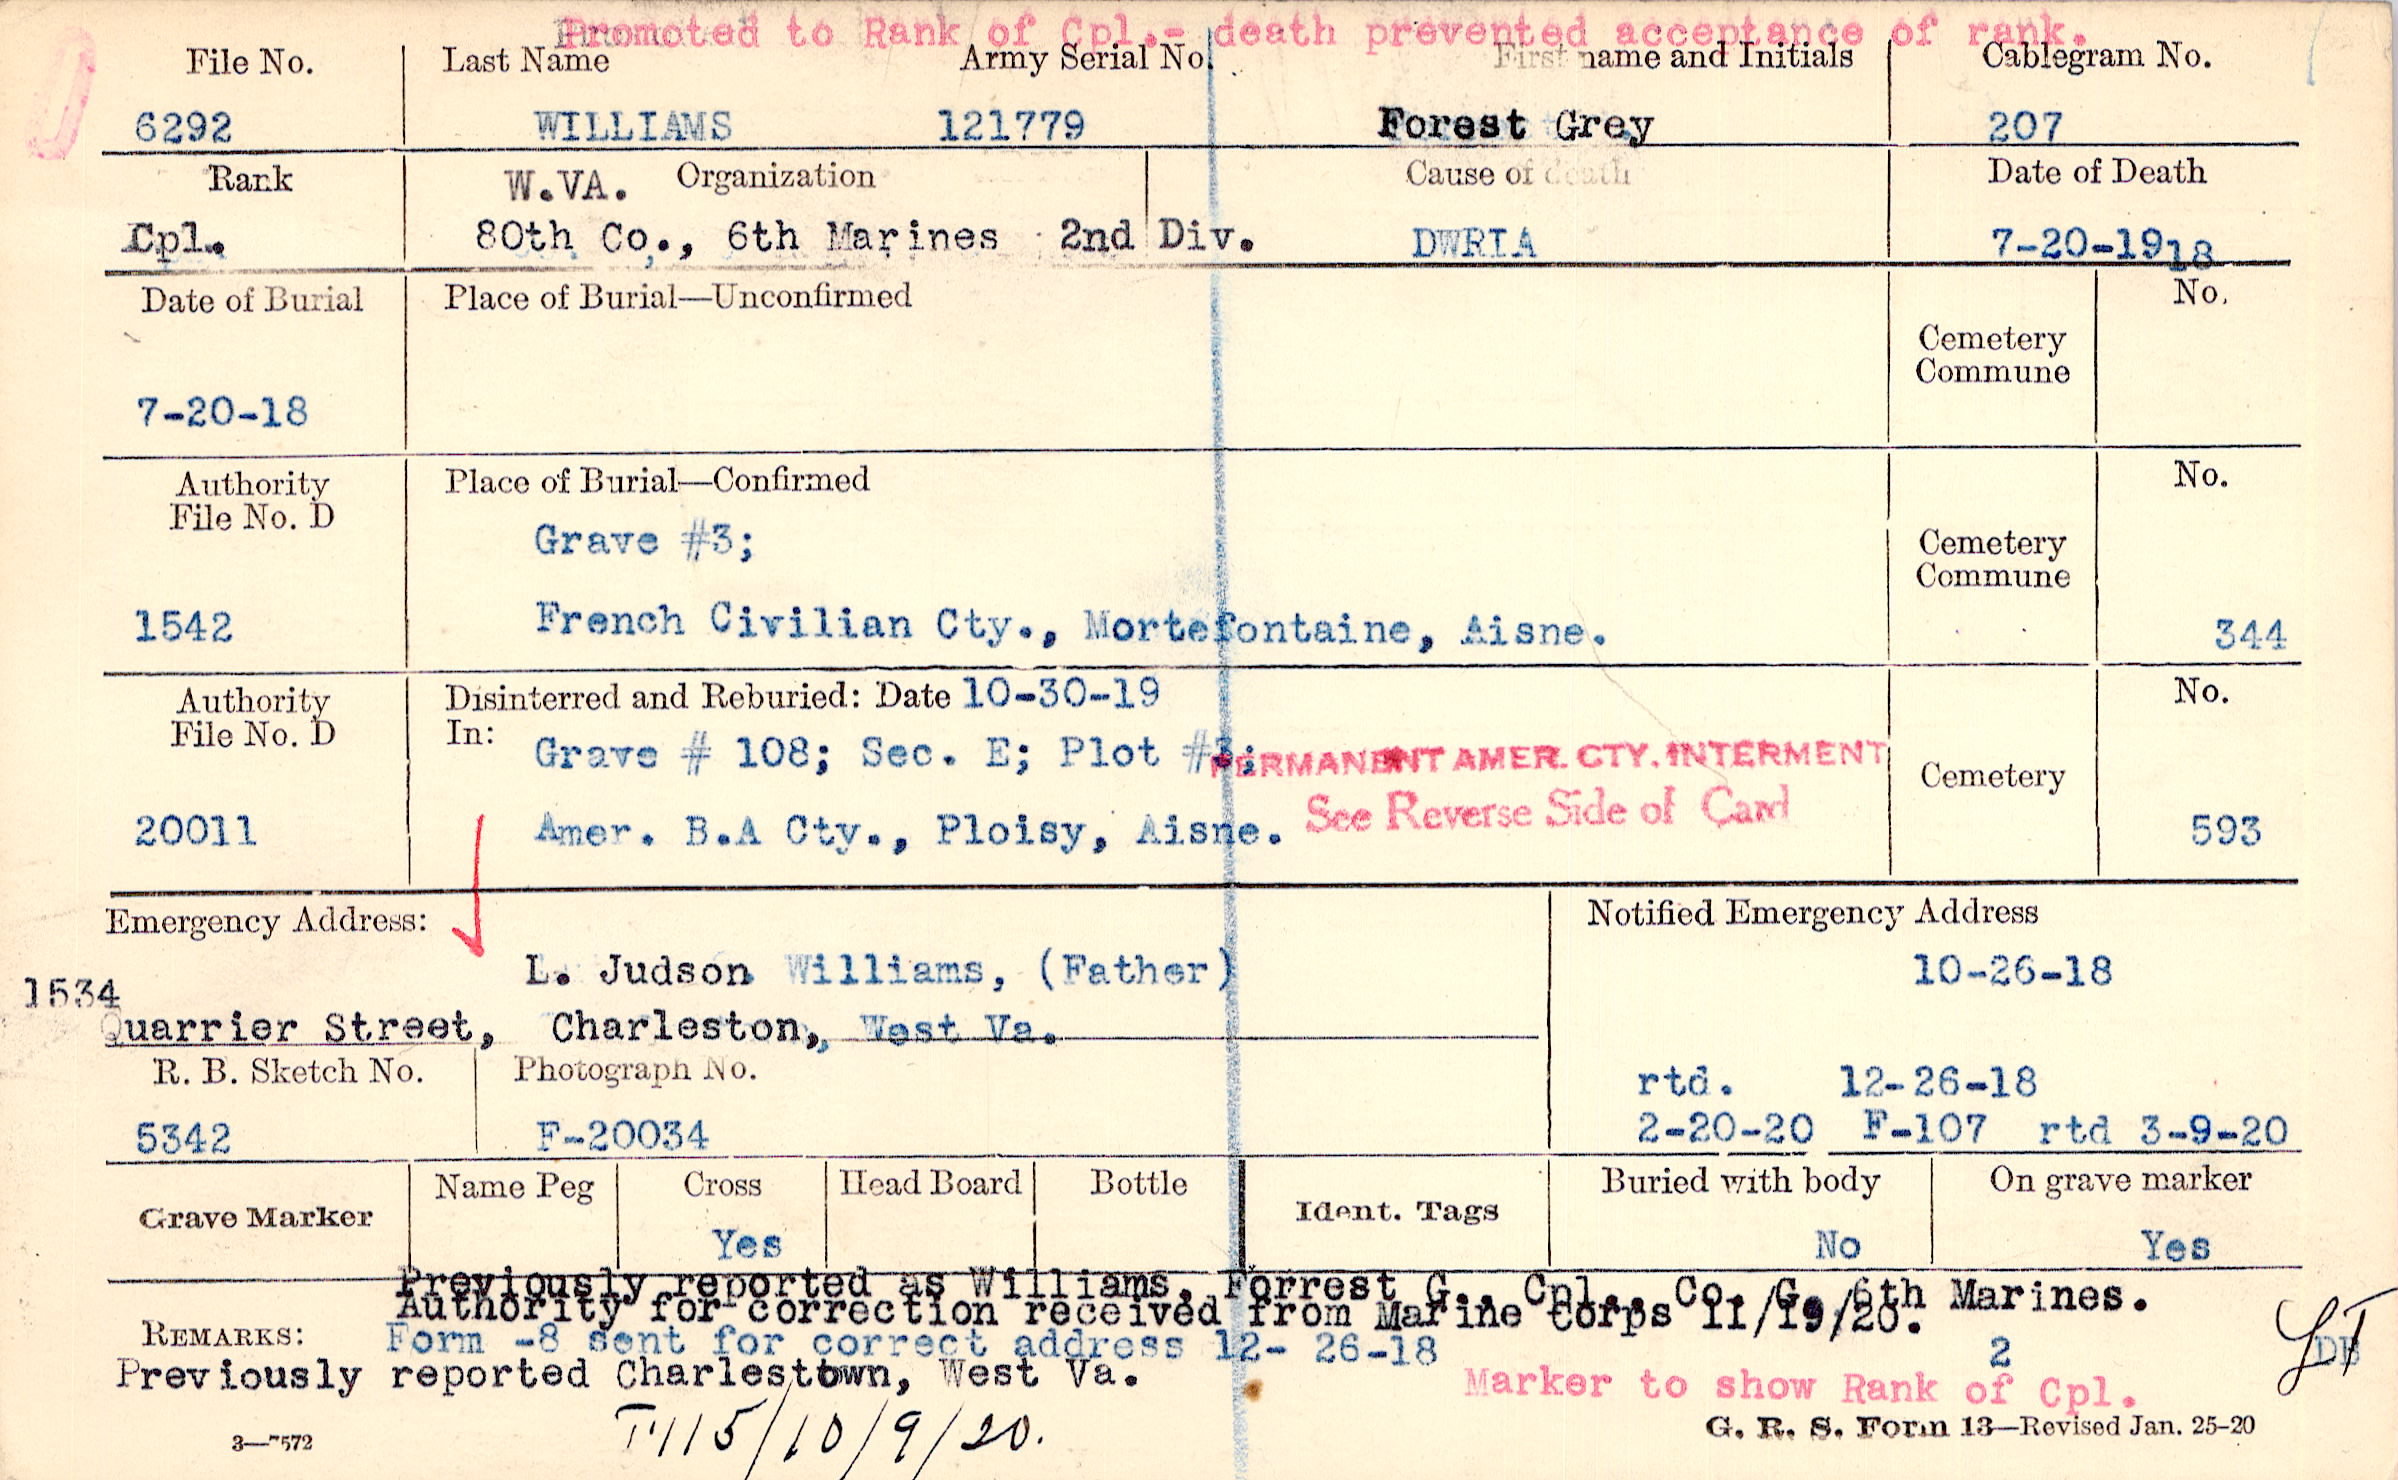 Promoted to Rank of Cpl.- death prevented acceptance of rank.
File No. Last Name Army Serial No. First name and Initials Cablegram No.
6292 WILLIAMS 121779 Forest Grey 207
Rank W.VA. Organization Cause of death Date of Death
Cpl. 80th Co., 6th Marines 2nd Div. DWRIA 7-20-1918
Date of Burial Place of Burial—Unconfirmed No.
Cemetery
Commune
7-20-18
Authority Place of Burial—Confirmed No.
File No. D
Grave #3; Cemetery
Commune
1542 French Civilian Cty., Mortefontaine, Aisne. 344
Authority Disinterred and Reburied: Date 10-30-19 No.
File No. D In:
Grave # 108; Sec. E; Plot #3; PERMANENT AMER. CTY. INTERMENT
Cemetery
20011 Amer. B.A Cty., Ploisy, Aisne. See Reverse Side of Card 593
Emergency Address: Notified Emergency Address
L. Judson Williams, (Father) 10-26-18
1534
Quarrier Street, Charleston, West Va.
R. B. Sketch No. Photograph No. rtd. 12-26-18
5342 F-20034 2-20-20 F-107 rtd 3-9-20
Grave Marker Name Peg Cross Head Board Bottle Ident. Tags Buried with body On grave marker
Yes No Yes
Previously reported as Williams, Forrest G., Cpl., Co. G. 6th Marines.
Authority for correction received from Marine Corps 11/19/20.
REMARKS: Form -8 sent for correct address 12- 26-18 2
Previously reported Charlesttown, West Va. Marker to show Rank of Cpl.
115/10/9/20.
3—7572 G. R. S. Form 13—Revised Jan. 25-20